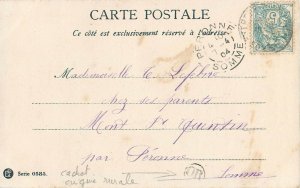 CARTE POSTALE
Ce côté est exclusivement réservé à l'adresse
PERONNE
04
SOMME
Mademoiselle C. Lefebvre
chez ses parents
Mont St Quentin
par Péronne
Somme
OR
cachet
origine rurale
Serie 0385.